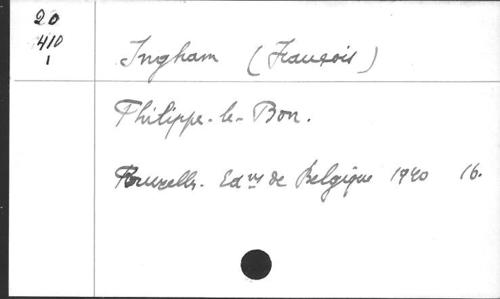 20
410
1
Ingham (François)
Philippe-le-Bon.
Bruxelles. Edns de Belgique 1940 16.